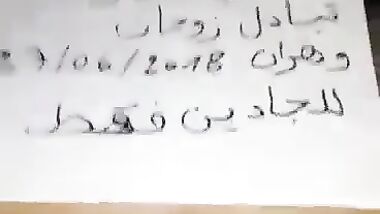 تبادل زوجات
وهران 2018/06/
للجادين فقط